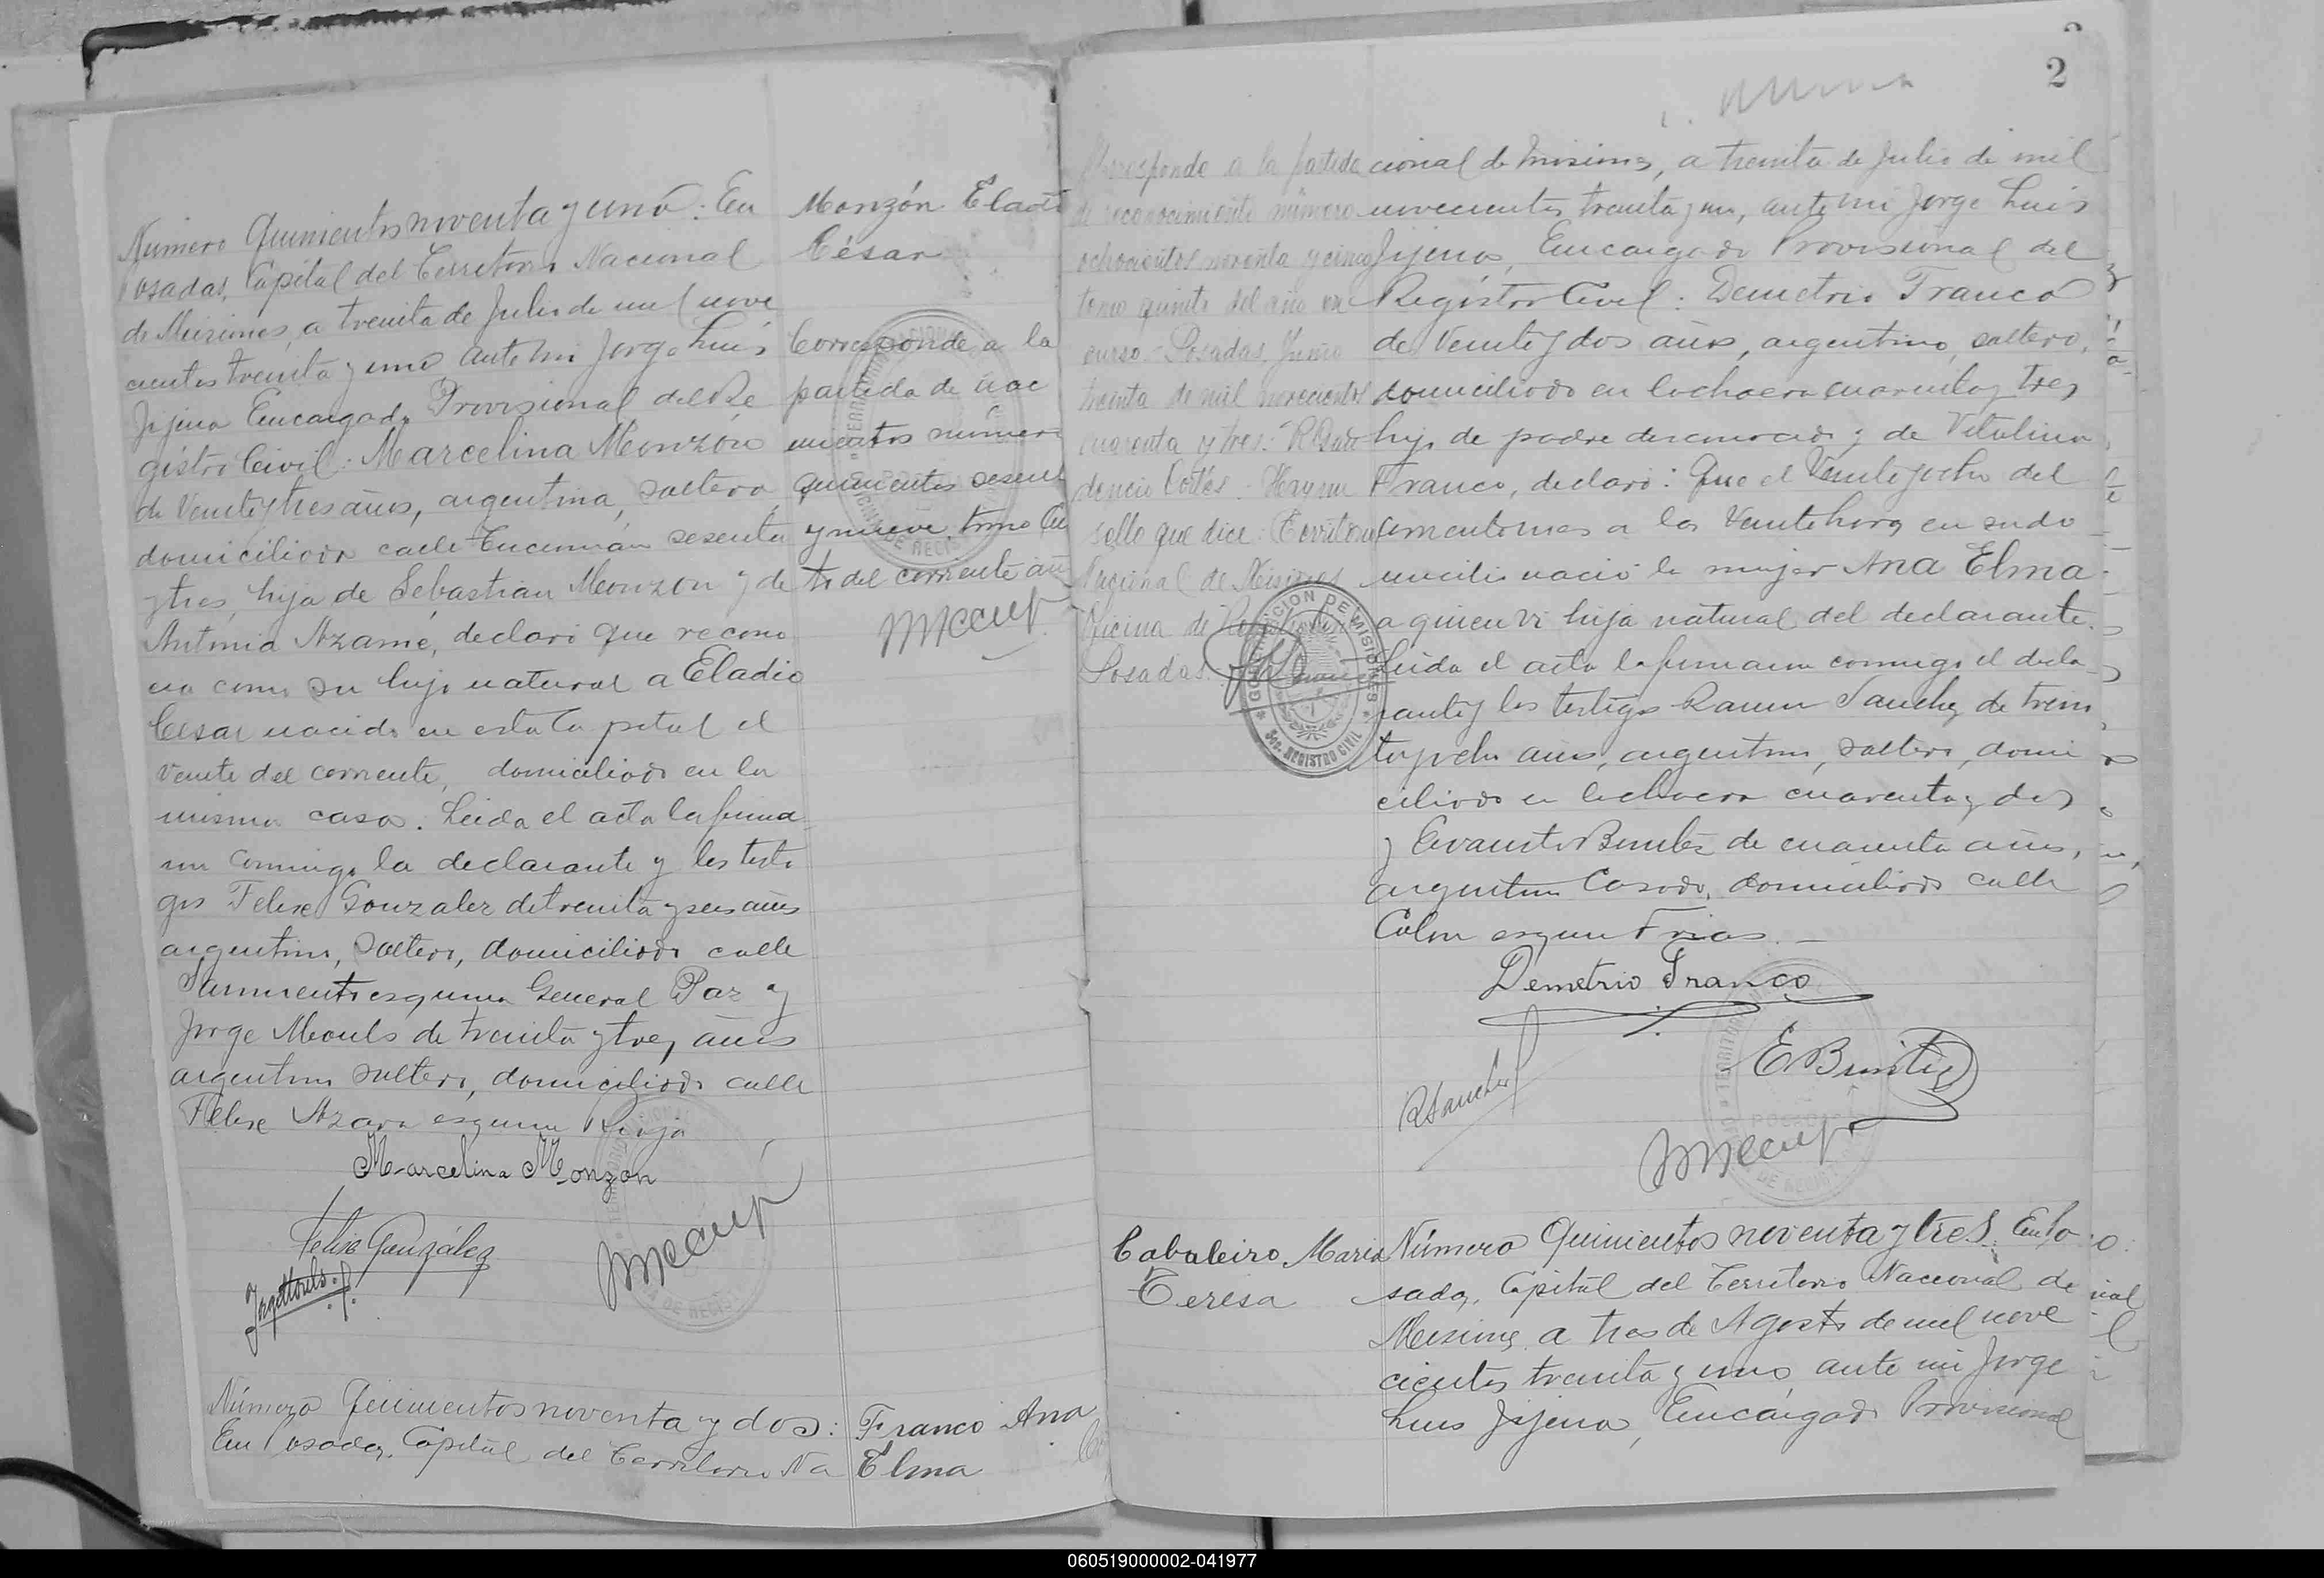 Número Quinientos noventa y uno: En
Posadas, Capital del Territorio Nacional
de Misiones, a treinta de Julio de mil nove
cientos treinta y uno ante mi Jorge Luis
Jijena Encargado Provisional del Re
gistro Civil: Marcelina Monzón
de Veintytres años, argentina, soltera,
domiciliada calle Tucumán sesenta
ytres, hija de Sebastian Monzon y de
Antonia Azamé, declaró que recono
cia como su hijo natural a Eladio
Cesar nacido en esta Capital el
veinte del corriente, domiciliado en la
misma casa. Leida el acta la firma
ron conmigo la declarante y los testi
gos Felise Gonzalez de treinta y seis años
argentino, soltero, domiciliado calle
Sarmiento esquina General Paz y
Jorge Meouls de treinta ytres años
argentino soltero, domiciliado calle
Felise Azara esquina Rioja
Marcelina Monzon
Felise González
Número Quinientos noventa y dos:
En Posadas, Capital del Territorio Na
Monzón Eladio
César
Corresponde a la
partida de nac
imientos número
quinientos sesent
y nueve tomo Cu
to del corriente añ
Franco Ana
Elma
2
Corresponde a la partida
de reconocimiento número
ochocientos noventa y cinco
tomo quinto del año en
curso. Posadas, Junio
treinta de mil novecientos
cuarenta y tres: R. Pru
dencio Cortés. Hay un
sello que dice: Territorio
Nacional de Misiones
Oficina de
Posadas.
GOBERNACION DE MISIONES
Sec. REGISTRO CIVIL
cional de Misiones, a treinta de Julio de mil
novecientos treinta y uno, ante mi Jorge Luis
Jijena, Encargado Provisional del
Registro Civil: Demetrio Franco
de Veinteydos años, argentino, soltero,
domiciliado en la chacra cuarenta y tres
hijo de padre desconocido y de Vitalina
Franco, declaró: Que el Veinteyocho del
corriente mes a las Veinte horas en su do
micilio nació la mujer Ana Elma
a quien vi hija natural del declarante.
Leida el acta la firmaron conmigo el decla
rante y los testigos Ramon Sanchez de trein
tayocho años, argentino, soltero, domi
ciliado en la chacra cuarenta y dos
y Evaristo Benitez de cuarenta años,
argentino Casado, domiciliado calle
Colon esquina Frias.
Demetrio Franco
RSanchez
E Benitez
Cabaleiro Maria
Teresa
Número Quinientos noventa y tres. En Po
sadas, Capital del Territorio Nacional de
Misiones a tres de Agosto de mil nove
cientos treinta y uno, ante mi Jorge
Luis Jijena, Encargado Provisional
060519000002-041977